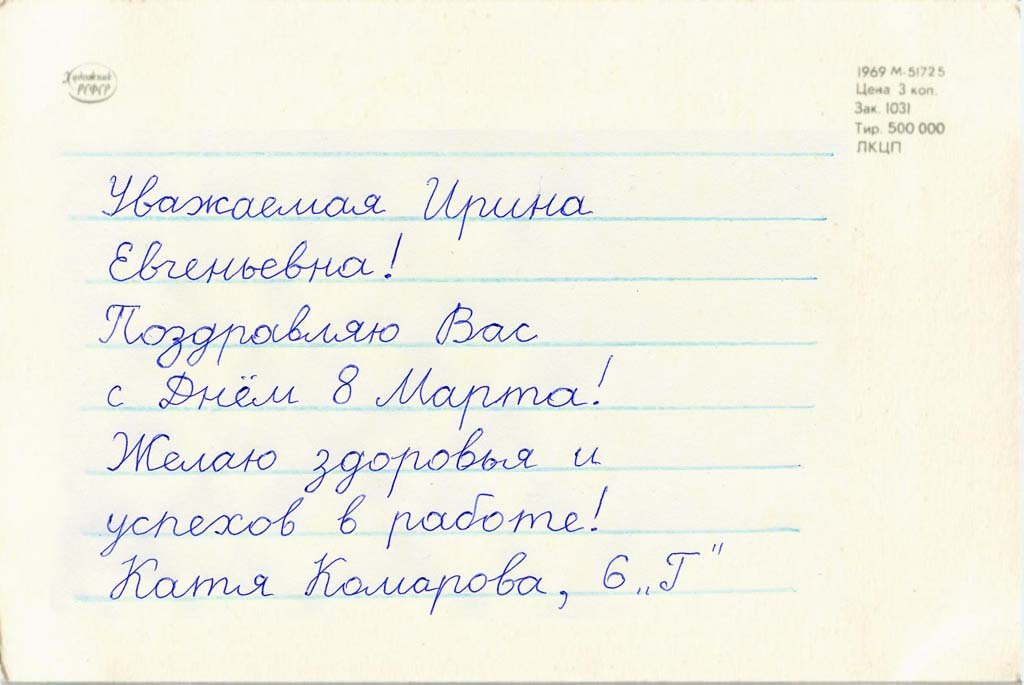 Художник
РСФСР
1969 М-51725
Цена 3 коп.
Зак. 1031
Тир. 500 000
ЛКЦП
Уважаемая Ирина
Евгеньевна!
Поздравляю Вас
с Днём 8 Марта!
Желаю здоровья и
успехов в работе!
Катя Комарова, 6 „Г"